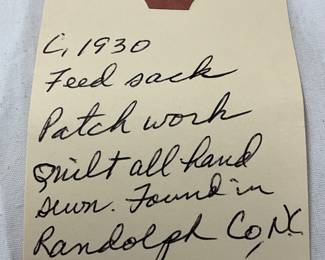 C, 1930
Feed sack
Patch work
quilt all hand
sewn. Found in
Randolph Co, N.C.